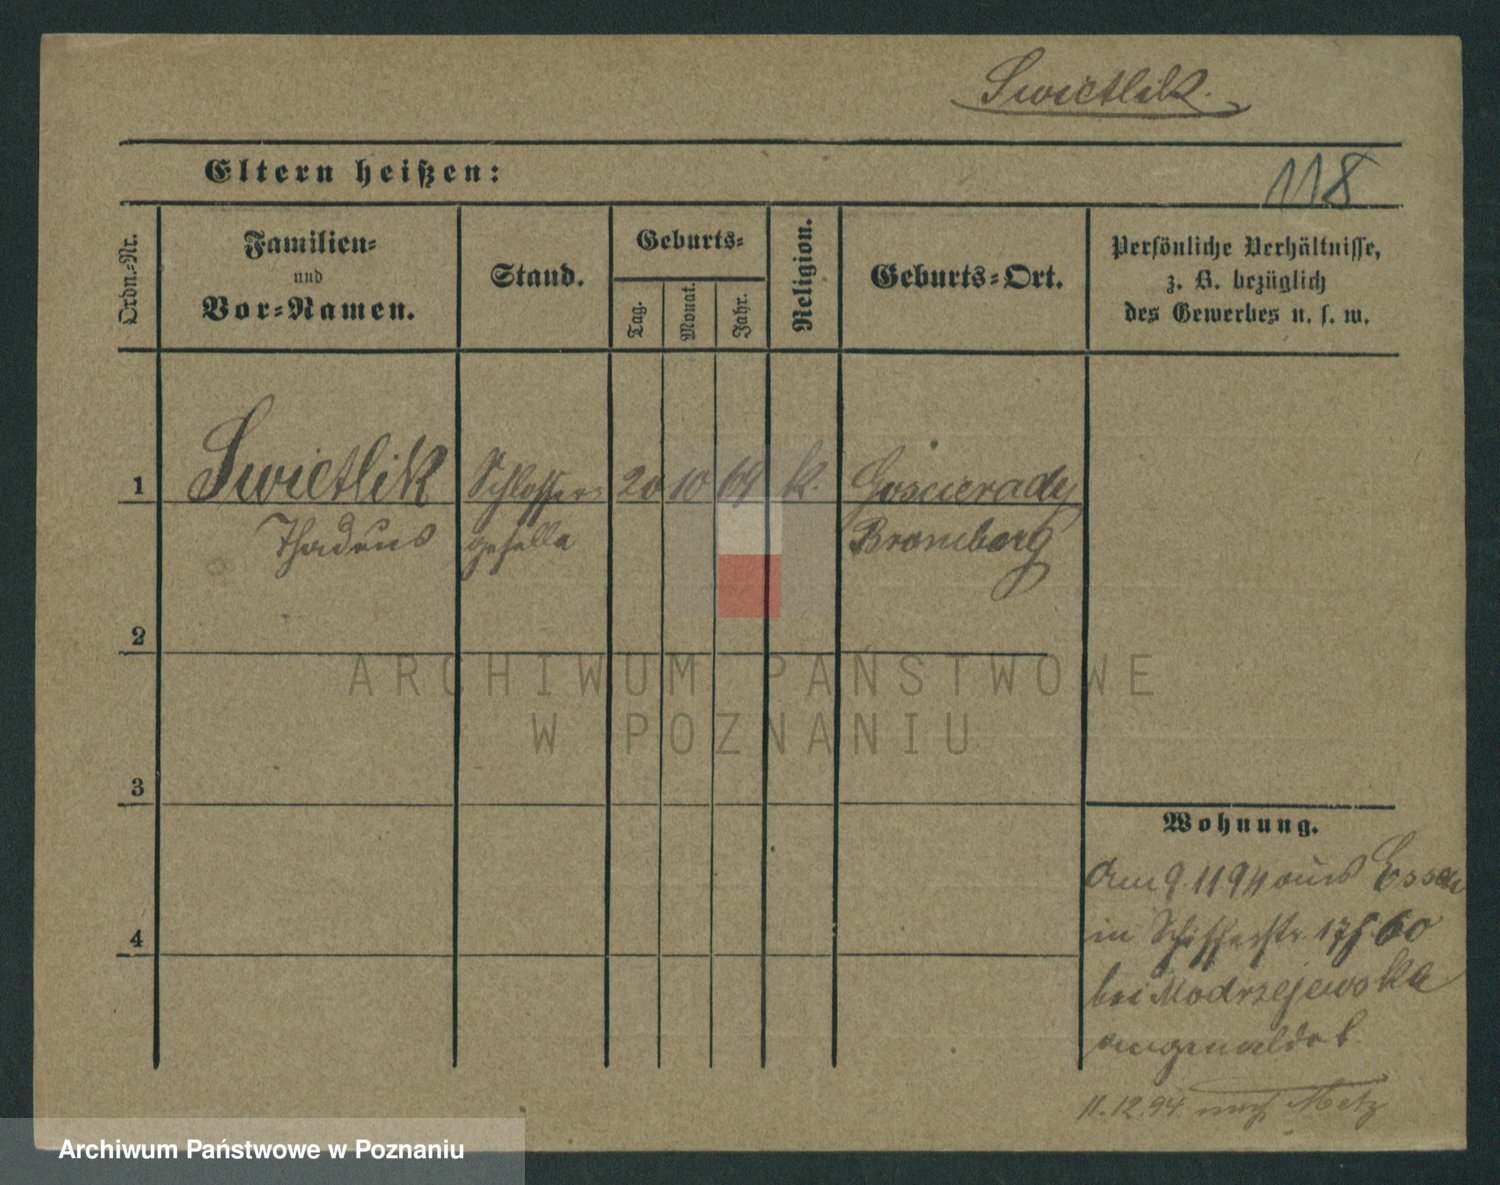 Swietlik.
Eltern heißen:
118
Ordn.-Nr.
Familien-
und
Vor-Namen.
Stand.
Geburts-
Tag.
Monat.
Jahr.
Religion.
Geburts-Ort.
Persönliche Verhältnisse,
z. B. bezüglich
des Gewerbes u. s. w.
1 Swietlik Schlosser 20 10 64 k. Goscierady
Thadeus geselle Bromberg
2
3
4
ARCHIWUM PAŃSTWOWE
W POZNANIU
Wohnung.
Am 9.11 94 aus Essen
in Schifferstr. 17 60
bei Modrzejewska
angemeldet
11.12.94 nach Metz
Archiwum Państwowe w Poznaniu